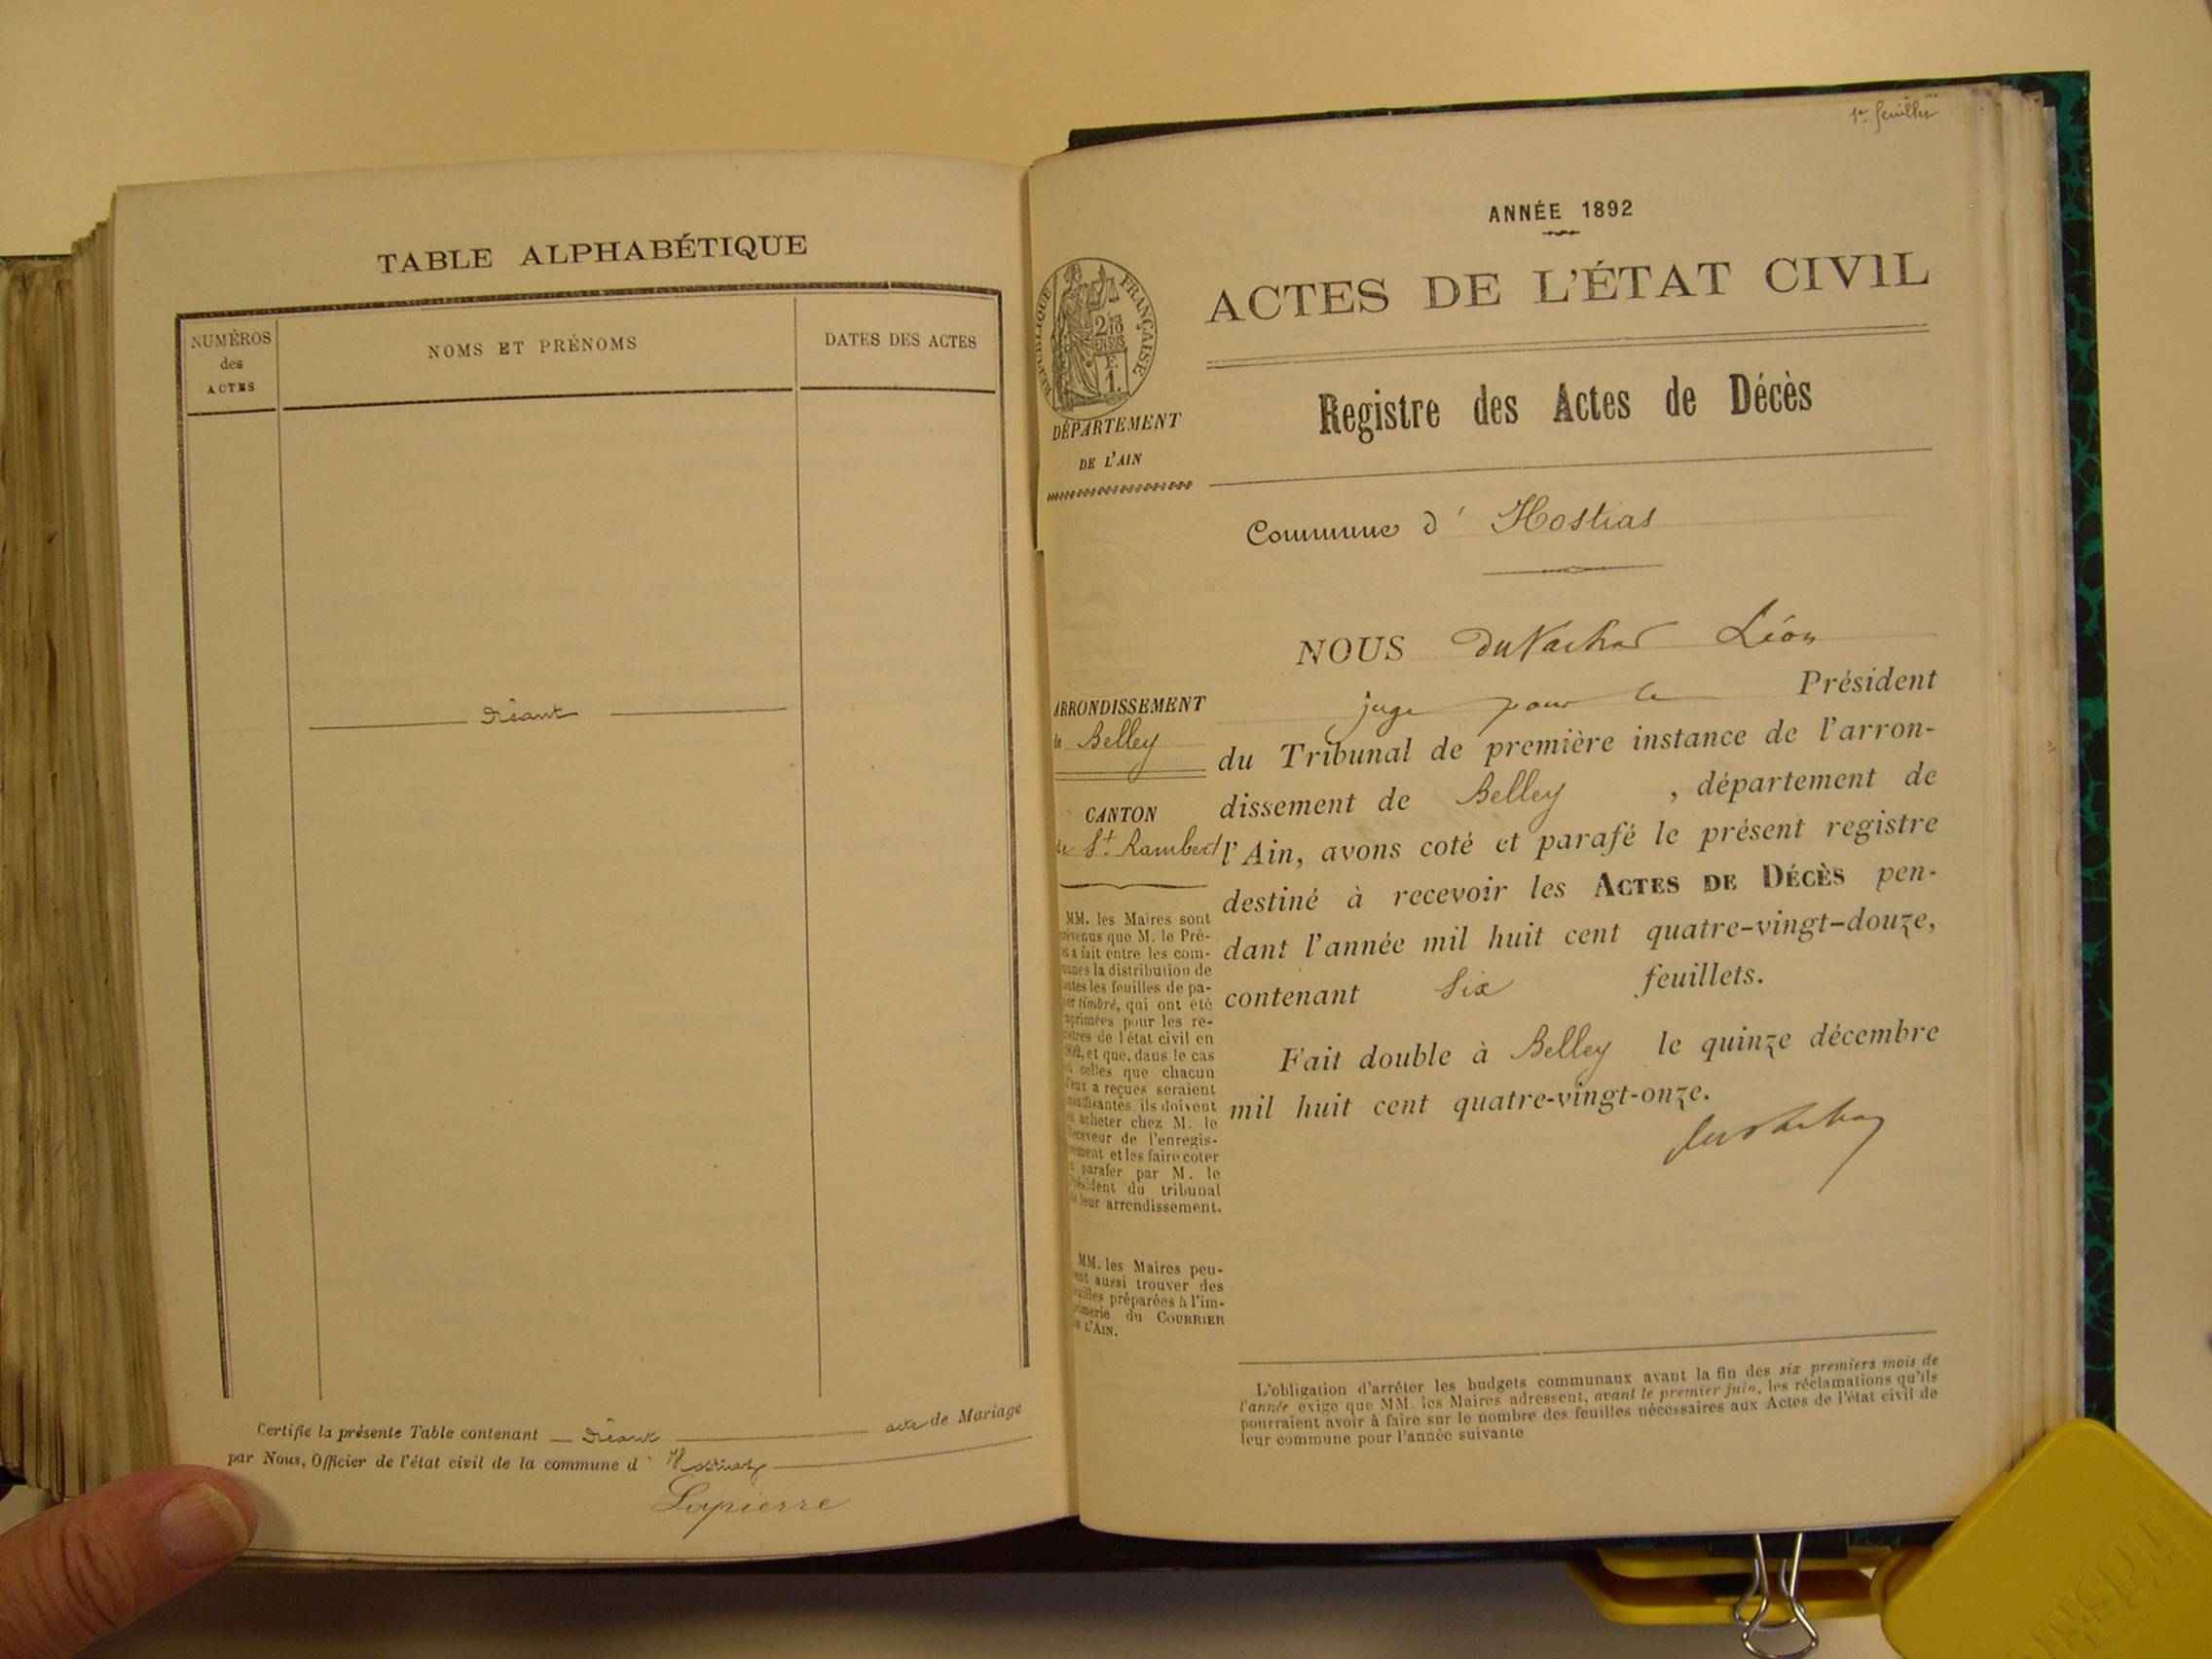 TABLE ALPHABÉTIQUE
NUMÉROS
des
ACTES
NOMS ET PRÉNOMS
DATES DES ACTES
Néant
Certifié la présente Table contenant Néant acte de Mariage
par Nous, Officier de l'état civil de la commune d' Hostias
Lapierre
1er feuillet
ANNÉE 1892
ACTES DE L'ÉTAT CIVIL
RÉPUBLIQUE FRANÇAISE
DÉPARTEMENT
DE L'AIN
Registre des Actes de Décès
Commune d' Hostias
NOUS Léon
juge pour le Président
du Tribunal de première instance de l'arron-
dissement de Belley , département de
l'Ain, avons coté et parafé le présent registre
destiné à recevoir les ACTES DE DÉCÈS pen-
dant l'année mil huit cent quatre-vingt-douze,
contenant Six feuillets.
Fait double à Belley le quinze décembre
mil huit cent quatre-vingt-onze.
ARRONDISSEMENT
de Belley
CANTON
de St. Rambert
MM. les Maires sont
prévenus que M. le Pré-
fet a fait entre les com-
munes la distribution de
toutes les feuilles de pa-
pier timbré, qui ont été
imprimées pour les re-
gistres de l'état civil en
1892, et que, dans le cas
où celles que chacun
d'eux a reçues seraient
insuffisantes, ils doivent
en acheter chez M. le
Receveur de l'enregis-
trement et les faire coter
et parafer par M. le
Président du tribunal
de leur arrondissement.
MM. les Maires peu-
vent aussi trouver des
feuilles préparées à l'im-
primerie du COURRIER
DE L'AIN.
L'obligation d'arrêter les budgets communaux avant la fin des six premiers mois de
l'année exige que MM. les Maires adressent, avant le premier juin, les réclamations qu'ils
pourraient avoir à faire sur le nombre des feuilles nécessaires aux Actes de l'état civil de
leur commune pour l'année suivante